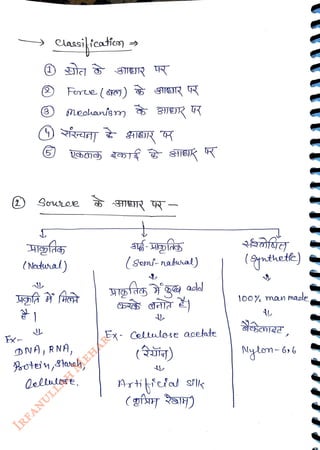 → Classification ⇒
① स्रोत के आधार पर
② Force (बल) के आधार पर
③ Mechanism के आधार पर
④ संरचना के आधार पर
⑤ एकलक इकाई के आधार पर
① Source के आधार पर —
प्राकृतिक
(Natural)
⇓
प्रकृति में मिलते
है।
⇓
Ex-
DNA, RNA,
Protein, Starch,
Cellulose.
अर्द्ध-प्राकृतिक
(Semi-natural)
⇓
प्राकृतिक में कुछ add
करके बनाते है।
⇓
Ex- Cellulose acetate
(रेयॉन)
⇓
Artificial silk
(कृत्रिम रेशम)
संश्लेषित
(Synthetic)
⇓
100% man made
⇓
बैकेलाइट,
Nylon-6,6
IRFANULLAH MEHAR